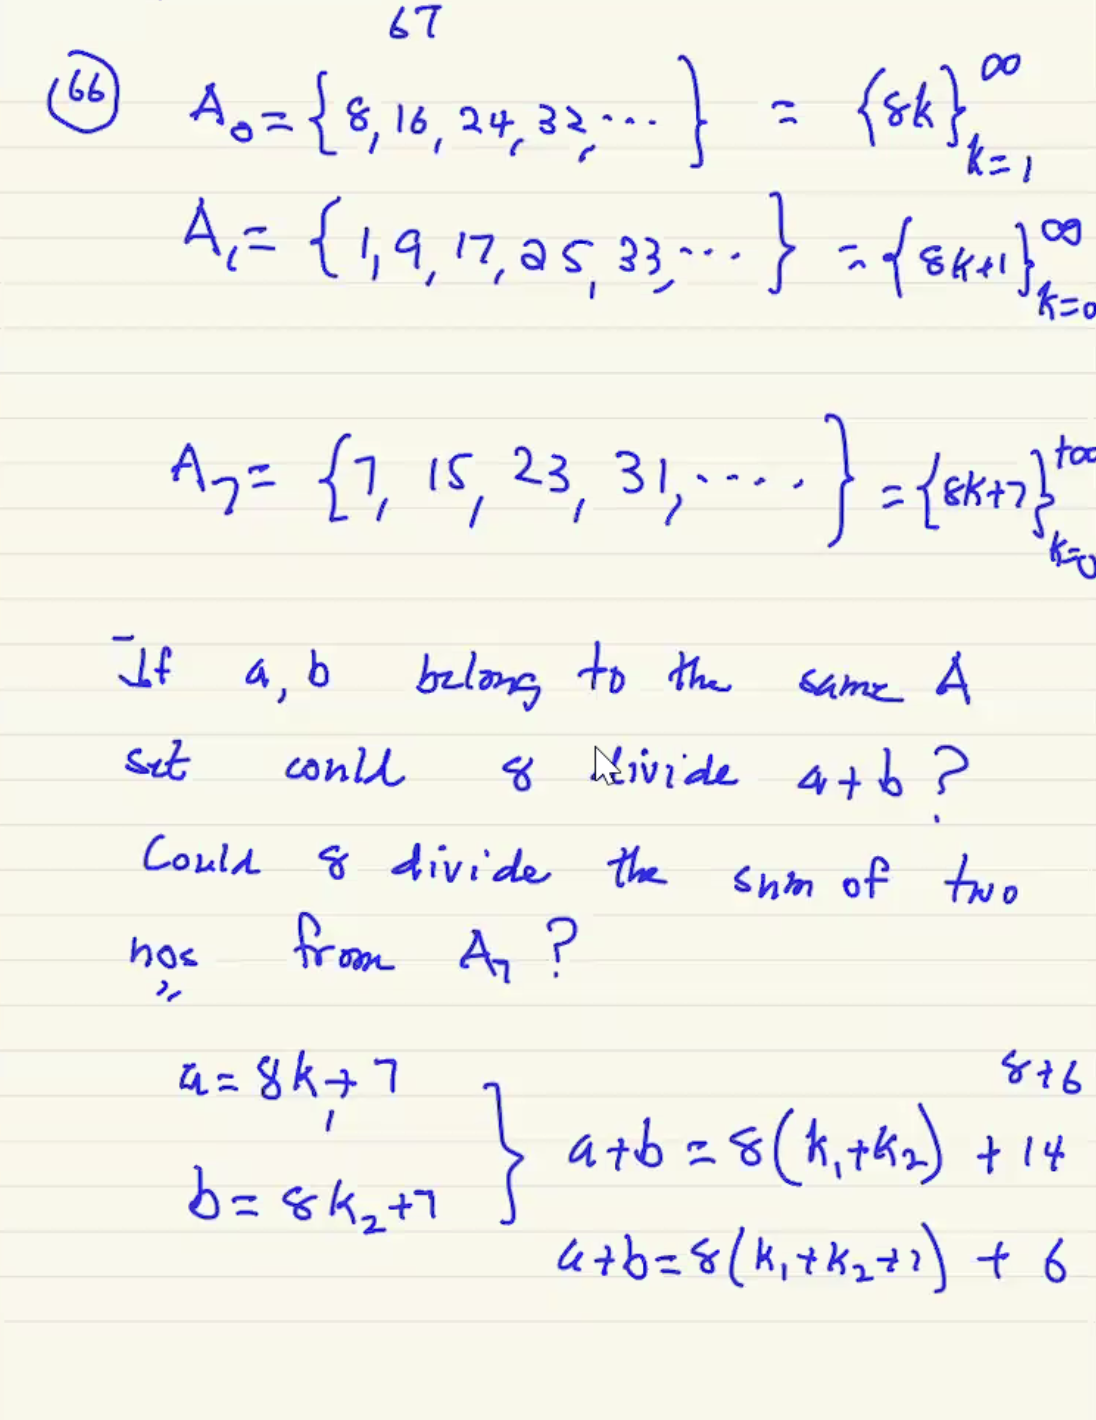 67
66 A₀ = { 8, 16, 24, 32, ... } = {8k}_{k=1}^∞
A₁ = { 1, 9, 17, 25, 33, ... } = {8k+1}_{k=0}^∞
A₇ = { 7, 15, 23, 31, .... } = {8k+7}_{k=0}^{+∞}
If a, b belong to the same A
set could 8 divide a+b ?
Could 8 divide the sum of two
nos from A₇ ?
8+6
a = 8k₁+7
a+b = 8(k₁+k₂) + 14
b = 8k₂+7
a+b = 8(k₁+k₂+1) + 6